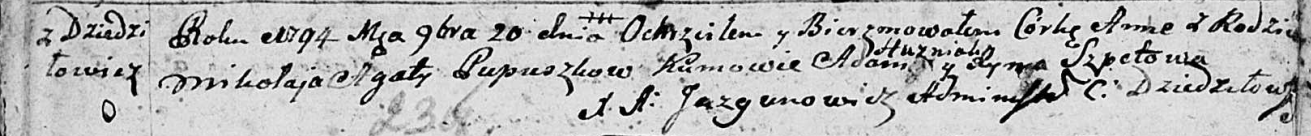 z Dziedzi
łowicz
0
Roku 1794 Mca 9bra 20 dnia Ochrzciłem y Bierzmowałem Córkę Annę z Rodzic
Mikołaja Agaty Pupuszkow Kumowie Adam Huzniak y Szpetowa
X. A: Jazgunowicz Administr C: Dziedziłow